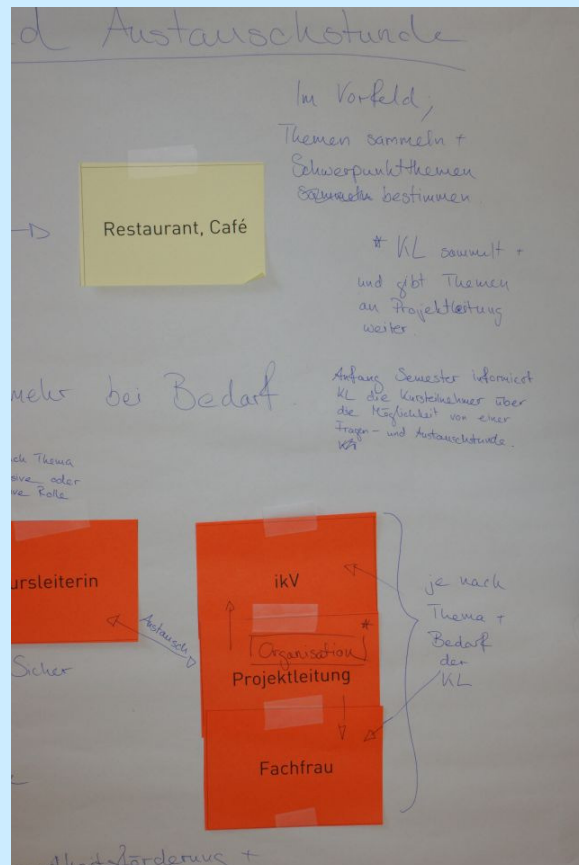 d Austauschstunde
Im Vorfeld,
Themen sammeln +
Schwerpunktthemen
bestimmen
Restaurant, Café
* KL sammelt +
und gibt Themen
an Projektleitung
weiter.
mehr bei Bedarf
Anfang Semester informiert
KL die Kursteilnehmer über
die Möglichkeit von einer
Fragen- und Austauschstunde.
ch Thema
sive oder
ve Rolle
ursleiterin
ikV
je nach
Thema +
Bedarf
der
KL
Austausch
*
Organisation
Projektleitung
Sicher
Fachfrau
förderung +